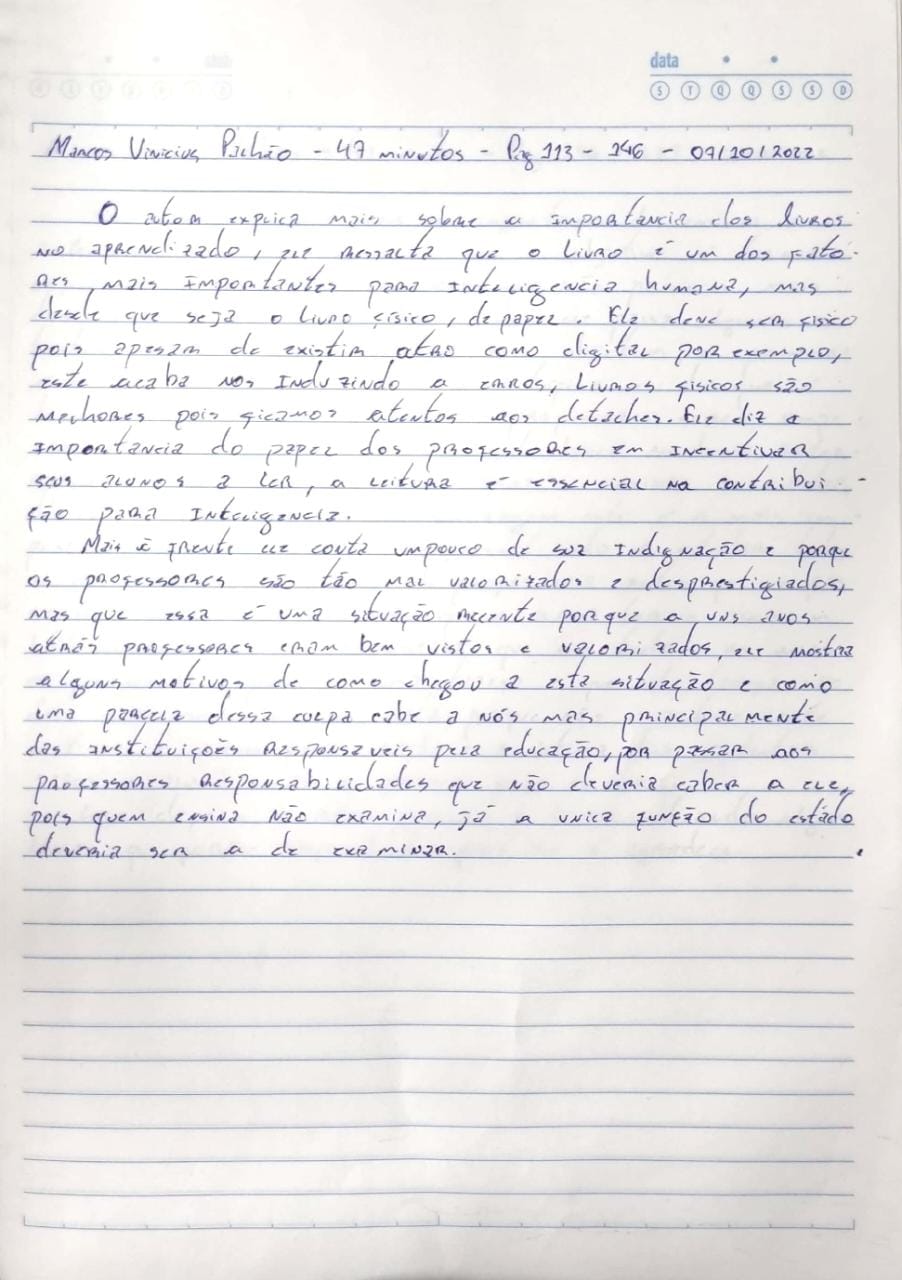 data
S T Q Q S S D
Marcos Vinicius Pachão - 47 minutos - Pag 113 - 146 - 07/10/2022
O autor explica mais sobre a importancia dos livros
no aprendizado, ele ressalta que o livro é um dos fato-
res mais importantes para inteligencia humana, mas
desde que seja o livro físico, de papel. Ele deve ser físico
pois apesar de existir atro como digital por exemplo,
este acaba nos induzindo a erros, livros físicos são
melhores pois ficamos atentos aos detalhes. Ele diz a
importancia do papel dos professores em incentivar
seus alunos a ler, a leitura é essencial na contribui-
ção para inteligencia.
Mais è frente ele conta umpouco de sua indignação e porque
os professores são tão mal valorizados e desprestigiados,
mas que essa é uma situação recente porque a uns anos
atrás professores eram bem vistos e valorizados, ele mostra
alguns motivos de como chegou a esta situação e como
uma parcela dessa culpa cabe a nós mas principalmente
das instituições responsaveis pela educação, por passar aos
professores responsabilidades que não deveria caber a ele,
pois quem ensina não examina, já a unica função do estado
deveria ser a de examinar.